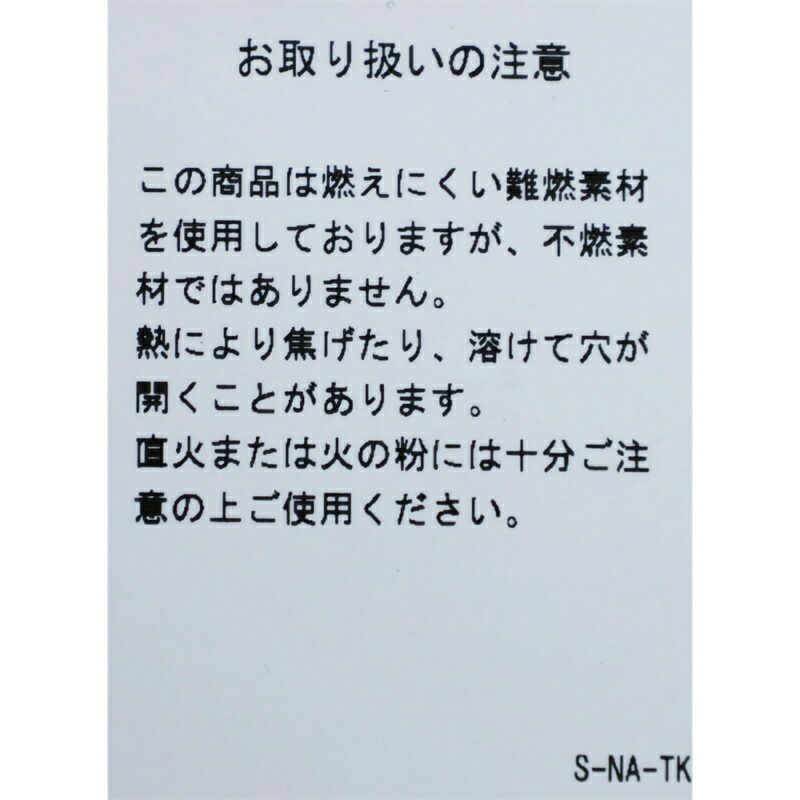 お取り扱いの注意
この商品は燃えにくい難燃素材
を使用しておりますが、不燃素
材ではありません。
熱により焦げたり、溶けて穴が
開くことがあります。
直火または火の粉には十分ご注
意の上ご使用ください。
S-NA-TK